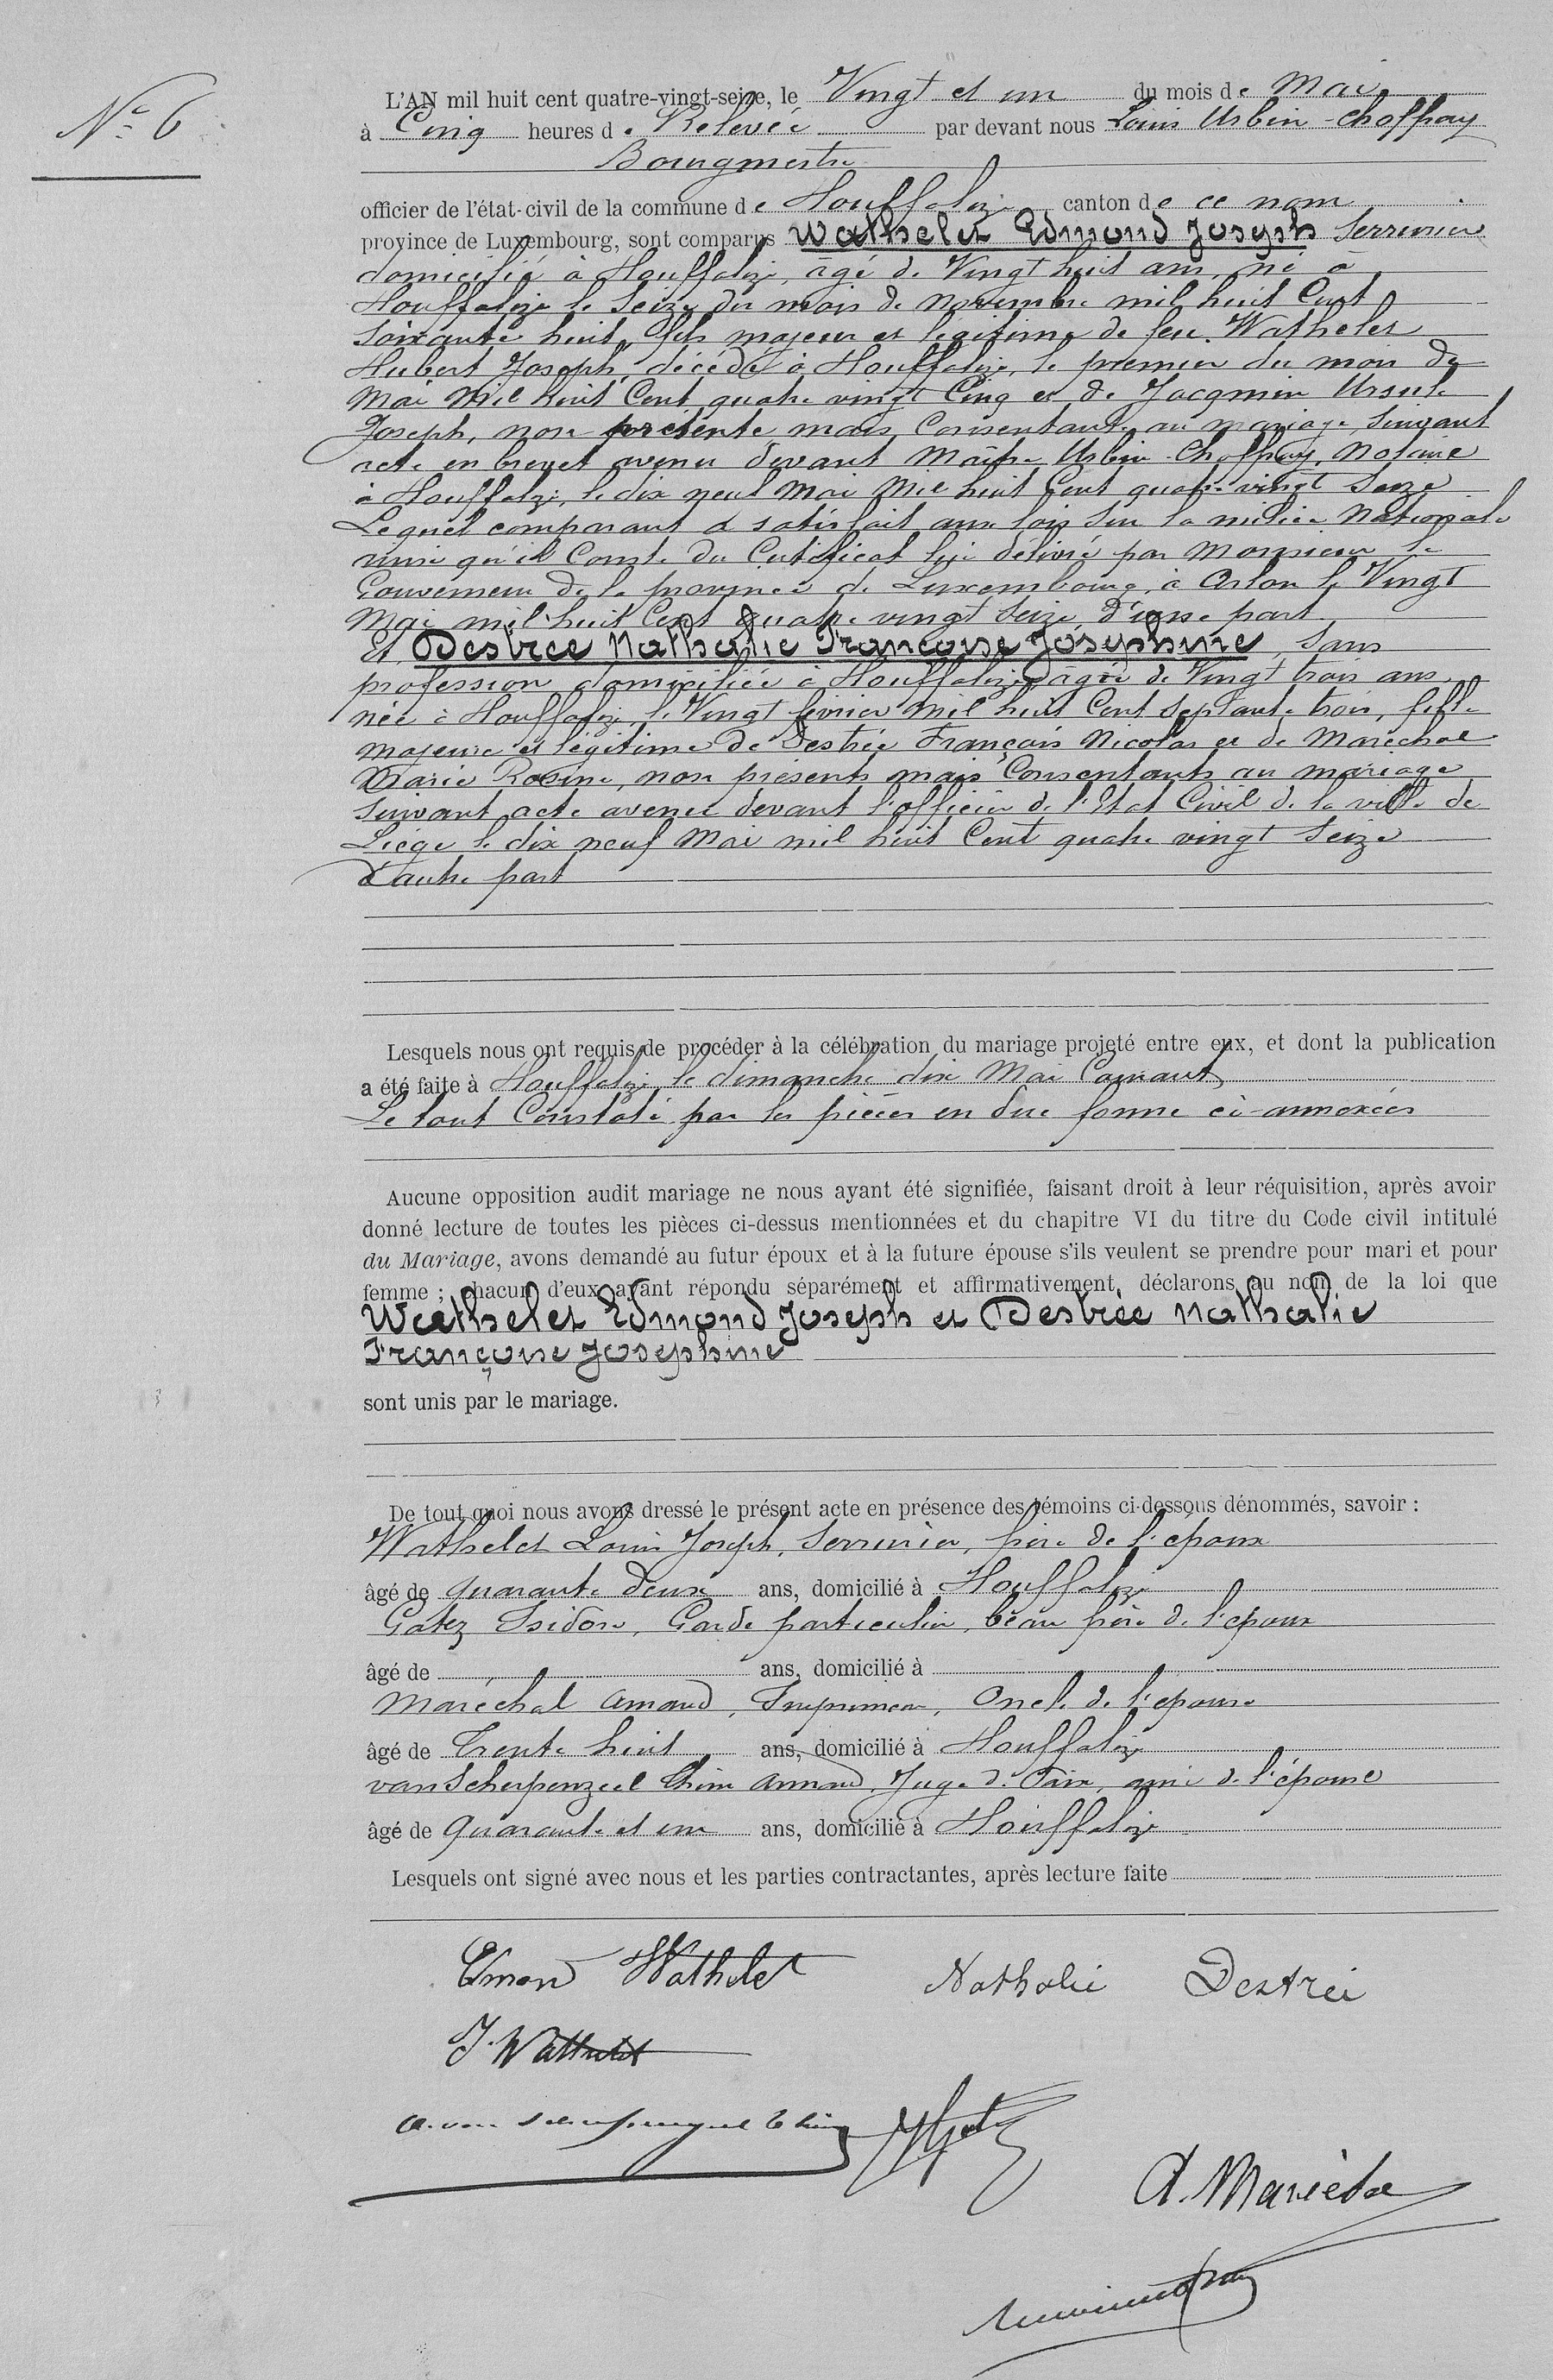 N° 6
L'AN mil huit cent quatre-vingt-seize, le Vingt et un du mois de Mai
à Cinq heures de Relevée par devant nous Louis Urbin-Choffray
Bourgmestre
officier de l'état-civil de la commune de Houffalize canton de ce nom
province de Luxembourg, sont comparus Wathelet Edmond Joseph Serrurier
domicilié à Houffalize, âgé de Vingt huit ans, né à
Houffalize le Seize du mois de Novembre mil huit Cent
soixante huit, fils majeur et légitime de feu Wathelet
Hubert Joseph, décédé à Houffalize, le premier du mois de
Mai Mil huit Cent quatre vingt Cinq et de Jacqmin Ursule
Joseph, non présente mais Consentante au mariage suivant
acte en brevet avenu devant Maître Urbin-Choffray, Notaire
à Houffalize, le dix neuf Mai Mil huit Cent quatre vingt Seize
Lequel comparant a satisfait aux lois sur la milice Nationale
ainsi qu'il Conste du Certificat lui délivré par Monsieur le
Gouverneur de la province de Luxembourg, à Arlon le Vingt
Mai mil huit Cent quatre vingt Seize, d'une part
Et Destrée Nathalie Françoise Joséphine, Sans
profession domiciliée à Houffalize âgée de Vingt trois ans
née à Houffalize, le Vingt février Mil huit Cent Septante trois, fille
majeure et légitime de Destrée François Nicolas et de Maréchal
Marie Rosine, non présents mais Consentants au mariage
suivant acte avenu devant l'officier de l'Etat Civil de la ville de
Liège le dix neuf Mai mil huit Cent quatre vingt Seize
d'autre part
Lesquels nous ont requis de procéder à la célébration du mariage projeté entre eux, et dont la publication
a été faite à Houffalize, le dimanche dix Mai Courant
Le tout Constaté par les pièces en due forme ci-annexées
Aucune opposition audit mariage ne nous ayant été signifiée, faisant droit à leur réquisition, après avoir
donné lecture de toutes les pièces ci-dessus mentionnées et du chapitre VI du titre du Code civil intitulé
du Mariage, avons demandé au futur époux et à la future épouse s'ils veulent se prendre pour mari et pour
femme ; chacun d'eux ayant répondu séparément et affirmativement, déclarons au nom de la loi que
Wathelet Edmond Joseph et Destrée Nathalie
Françoise Josephine
sont unis par le mariage.
De tout quoi nous avons dressé le présent acte en présence des témoins ci-dessous dénommés, savoir :
Wathelet Louis Joseph, Serrurier, frère de l'époux
âgé de quarante deux ans, domicilié à Houffalize
Gatez Isidore, Garde particulier, beau frère de l'époux
âgé de ans, domicilié à
Maréchal Amand, Imprimeur, Oncle de l'épouse
âgé de Trente huit ans, domicilié à Houffalize
van Scherpenzeel Thim Armand, Juge de Paix, ami de l'épouse
âgé de quarante et un ans, domicilié à Houffalize
Lesquels ont signé avec nous et les parties contractantes, après lecture faite
Emond Wathelet Nathalie Destrée
J. Wathelet
A. van Scherpenzeel Thim
A. Maréchal